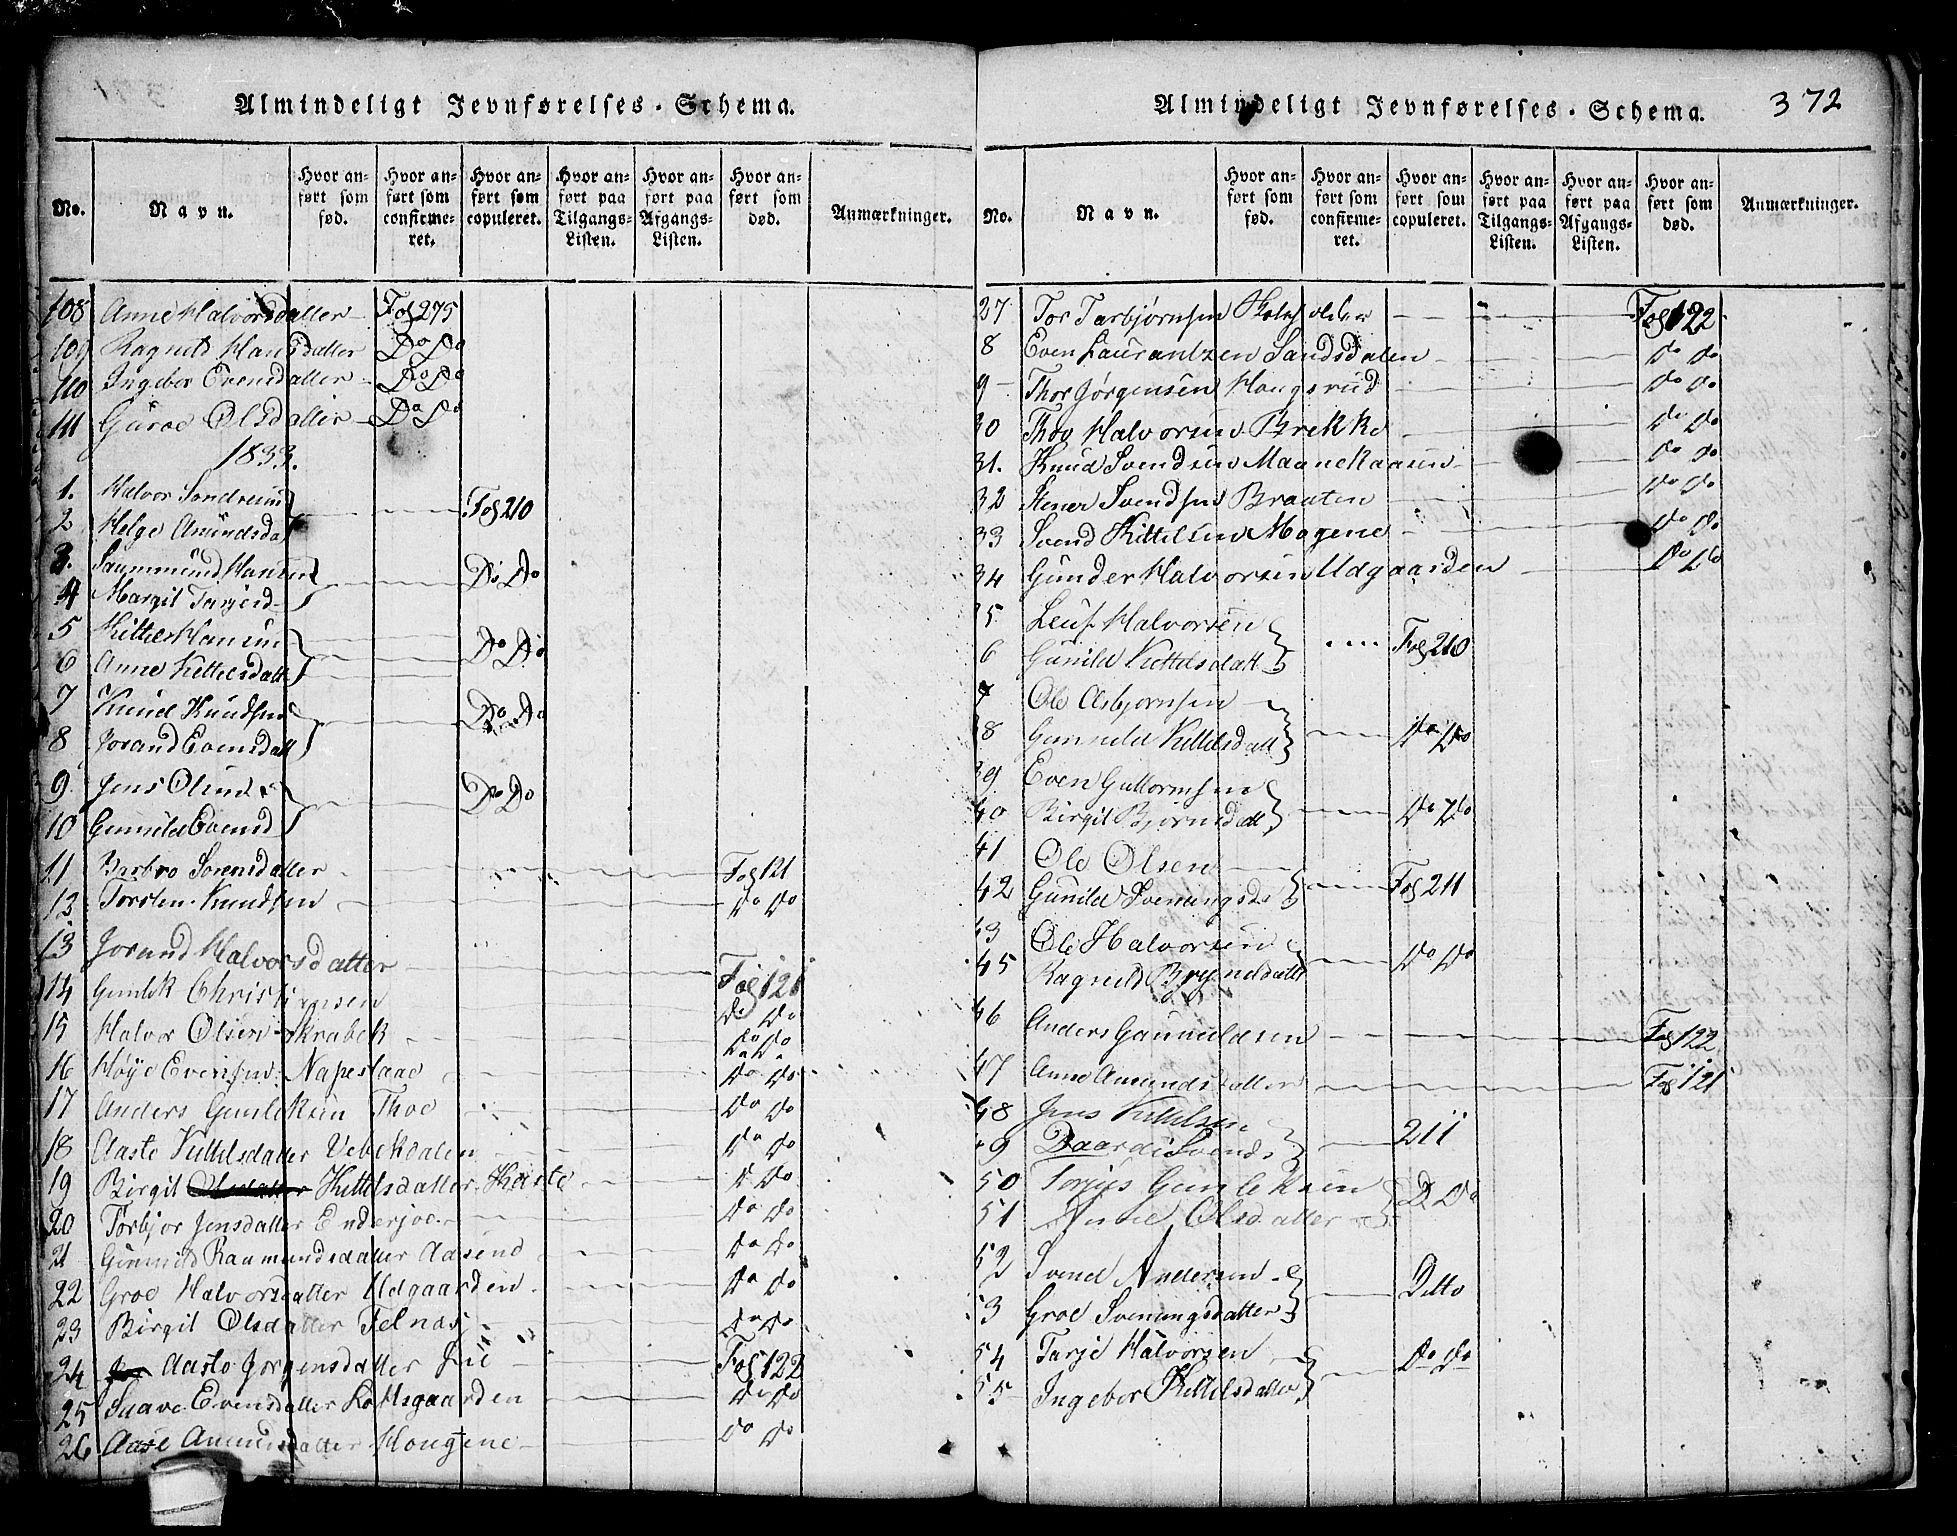 Almindeligt Jevnførelses-Schema.
No. Navn. Hvor anført som fød. Hvor anført som confirmeret. Hvor anført som copuleret. Hvor anført paa Tilgangs-Listen. Hvor anført paa Afgangs-Listen. Hvor anført som død. Anmærkninger.
108 Anne Halvorsdatter Fol 275
109 Ragnild Hansdatter Do Do
110 Ingebor Evensdatter Do Do
111 Guroe Olsdatter Do Do
1833.
1. Halvor
2 Helge Amundsda Fol 210
3. Hansen
4 Margit Tarjesd Do Do
5 Kittel Hansen
6 Anne Kittelsdatt Do Do
7 Knud Knudsen
8 Jorand Evensdatt Do Do
9 Jens Olsen
10 Gunild Evensd Do Do
11 Barbro Sorensdatter Fol 121
12 Torsten Knudsen do do
13 Jorand Halvorsdatter Fol 121
14 Gunlek Christiansen Do Do
15 Halvor Olsen Skrabek Do Do
16 Høye Evensen Napeslaae Do Do
17 Anders Gunleksen Thoe Do Do
18 Aaste Kittelsdatter Vebekdalen Do Do
19 Birgit Kittelsdatter Haste Do Do
20 Torbjor Jensdatter Enderjoe Do Do
21 Gunnild Raamundsdatter Aasend Do Do
22 Groe Halvorsdatter Udgaarden Do Do
23 Birgit Olsdatter Felnas Do Do
24 Aaste Jorgensdatter Lie Fol 122
25 Evensdatter Loftsgaarden Do Do
26 Aase Amundsdatter Hougene Do Do
Almindeligt Jevnførelses-Schema. 372
No. Navn. Hvor anført som fød. Hvor anført som confirmeret. Hvor anført som copuleret. Hvor anført paa Tilgangs-Listen. Hvor anført paa Afgangs-Listen. Hvor anført som død. Anmærkninger.
27 Tor Tarbjørnsen Skoleholder Fol 122
8 Even Laurantzen Sandsdalen do do
9 Thor Jørgensen Hougsrud do do
30 Thov Halvorsen Brekke do do
31. Knud Svendsen Maanekaasen do do
32 Stener Svendsen Braaten do do
33 Svend Kittelsen Mogene do do
34 Gunder Halvorsen Udgaarden Do Do
35 Leuf Halvorsen
6 Gunild Kittelsdatt Fol 210
7 Ole Asbjørnsen
38 Gunnild Kittelsdatt Do Do
39 Even Guttormsen
40 Birgit Bjørnsdatt Do Do
41 Ole Olsen
42 Gunild Sveningsd Fol 211
43 Ole Halvorsen
45 Ragnild Brynildsdatt Do Do
46 Anders Gunnuldsen Fol 122
47 Anne Amundsdatter Fol 121
48 Jens Kittelsen
49 Baardi Svends 211
50 Torjus Gunleksen
51 Anne Olsdatter D. Do
52 Svend Andersen
53 Groe Sveningsdatter Ditto
54 Tarje Halvorsen
55 Ingebor Kittelsdatter Do Do